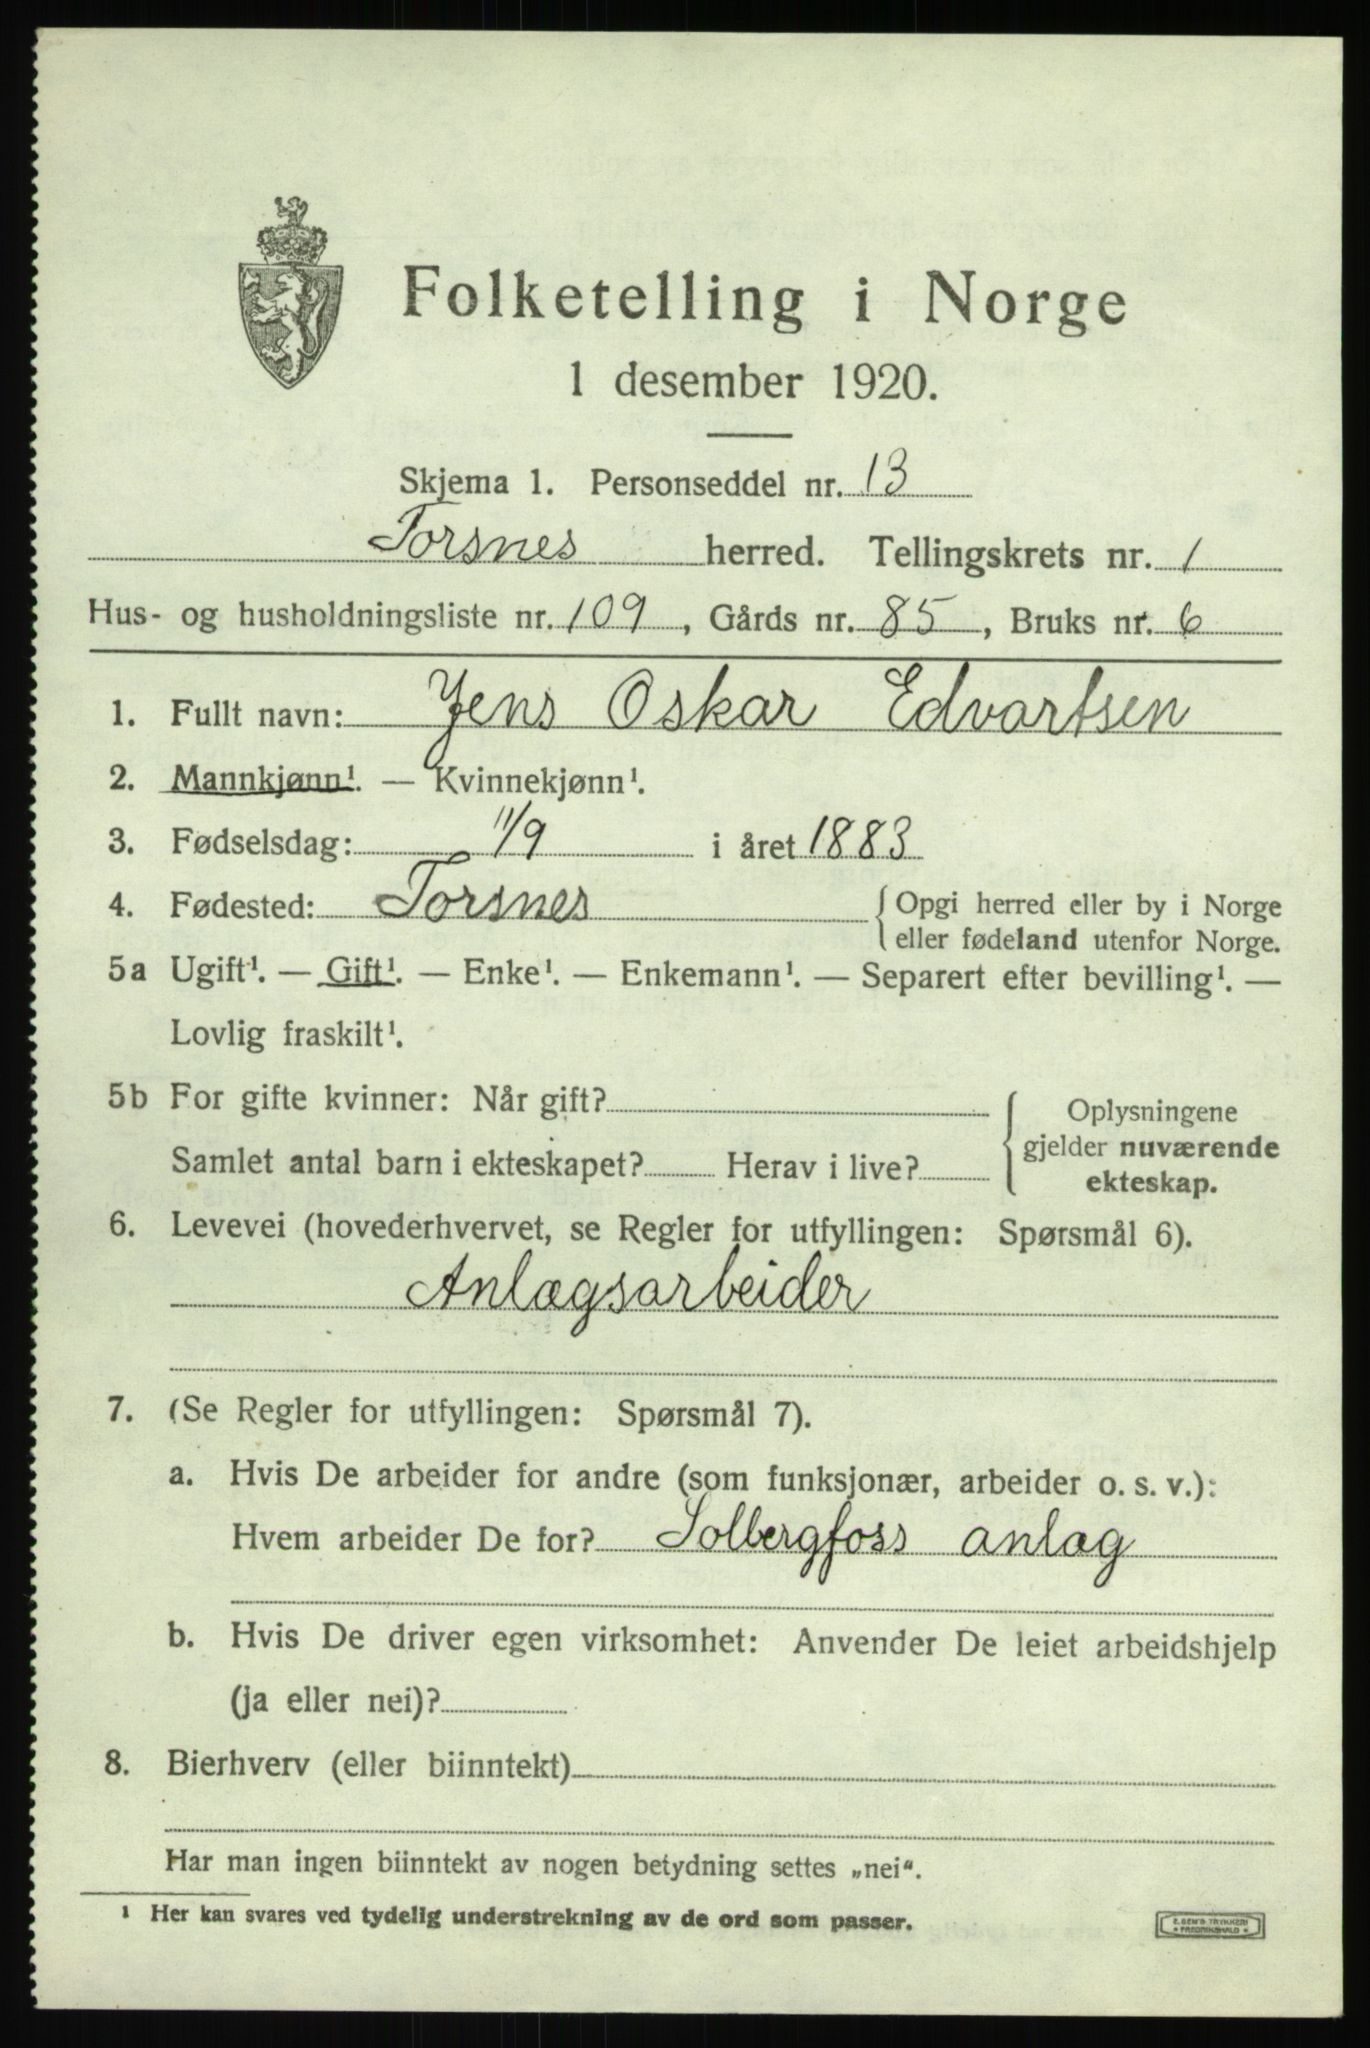 Folketelling i Norge
1 desember 1920.
Skjema 1. Personseddel nr. 13
Torsnes herred. Tellingskrets nr. 1
Hus- og husholdningsliste nr. 109, Gårds nr. 85, Bruks nr. 6
1. Fullt navn: Jens Oskar Edvartsen
2. Mannkjønn¹. — Kvinnekjønn¹.
3. Fødselsdag: 11/9 i året 1883
4. Fødested: Torsnes { Opgi herred eller by i Norge
eller fødeland utenfor Norge.
5a Ugift¹. — Gift¹. — Enke¹. — Enkemann¹. — Separert efter bevilling¹. —
Lovlig fraskilt¹.
5b For gifte kvinner: Når gift?
Samlet antal barn i ekteskapet? Herav i live?
{ Oplysningene
gjelder nuværende
ekteskap.
6. Levevei (hovederhvervet, se Regler for utfyllingen: Spørsmål 6).
Anlægsarbeider
7. (Se Regler for utfyllingen: Spørsmål 7).
a. Hvis De arbeider for andre (som funksjonær, arbeider o. s. v.):
Hvem arbeider De for? Solbergfoss anlæg
b. Hvis De driver egen virksomhet: Anvender De leiet arbeidshjelp
(ja eller nei)?
8. Bierhverv (eller biinntekt)
Har man ingen biinntekt av nogen betydning settes „nei“.
¹ Her kan svares ved tydelig understrekning av de ord som passer.
E. SEM'S TRYKKERI
FREDRIKSHALD